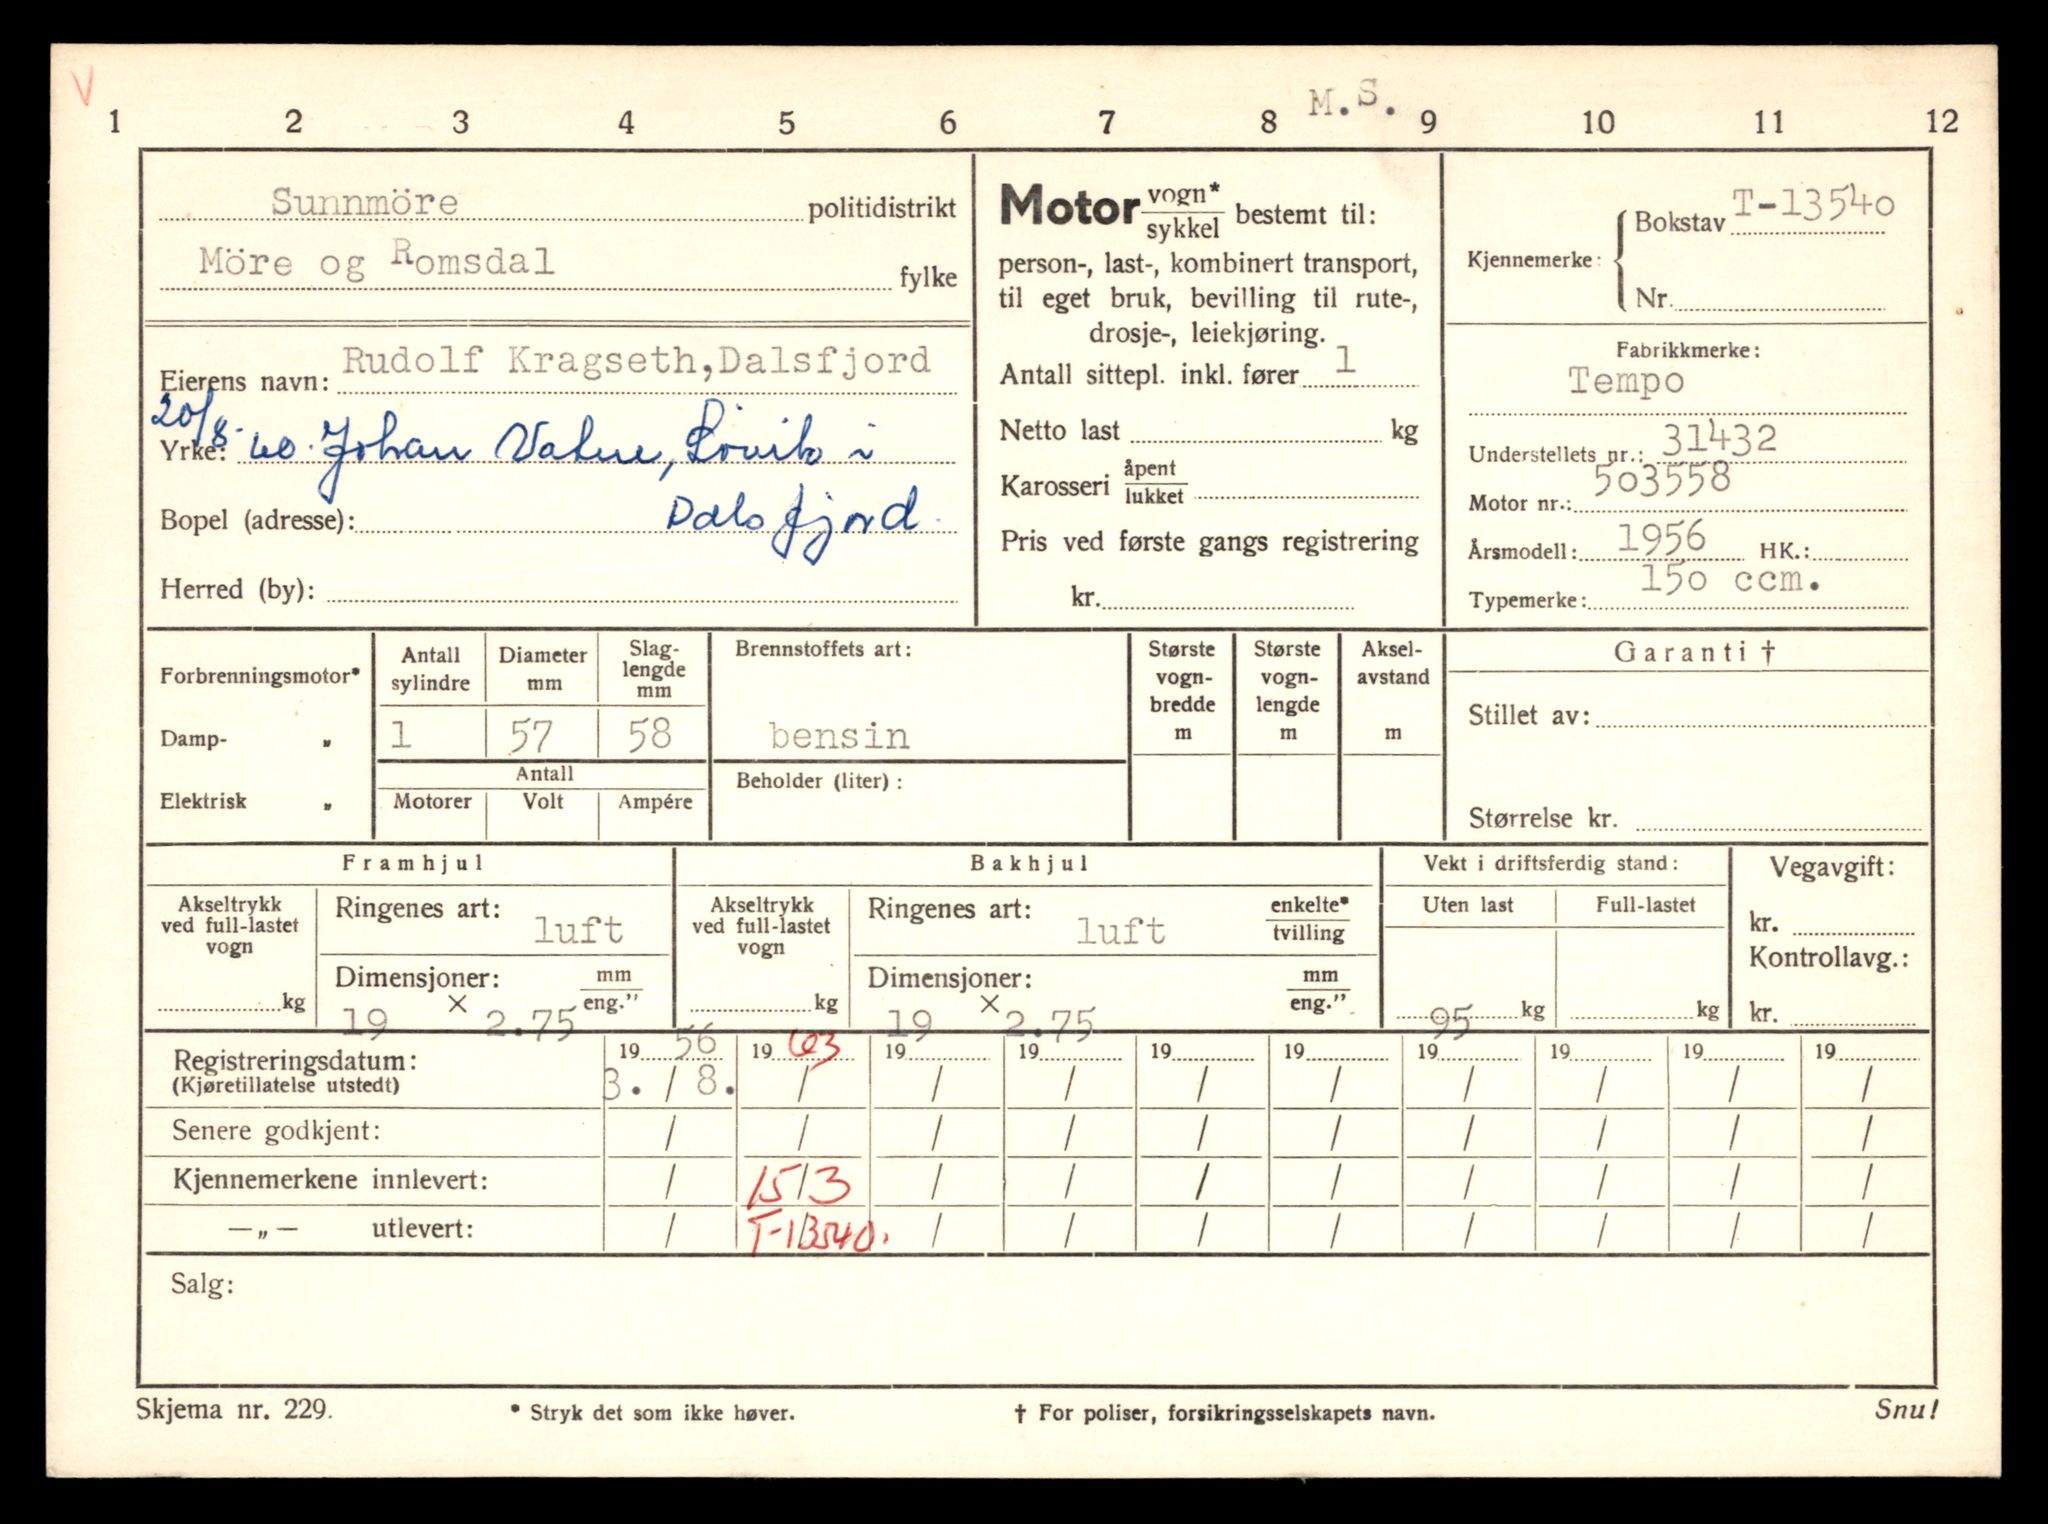 V
M.S.
1 2 3 4 5 6 7 8 9 10 11 12
Sunnmöre politidistrikt
Möre og Romsdal fylke
Eierens navn: Rudolf Kragseth, Dalsfjord
20/8-
Yrke: 60. Johan Vatne, Lövik i
Bopel (adresse): Dalsfjord.
Herred (by):
Motor vogn*
sykkel bestemt til:
person-, last-, kombinert transport,
til eget bruk, bevilling til rute-,
drosje-, leiekjøring.
Antall sittepl. inkl. fører 1
Netto last kg
Karosseri åpent
lukket
Pris ved første gangs registrering
kr.
Kjennemerke: Bokstav T-13540
Nr.
Fabrikkmerke:
Tempo
Understellets nr.: 31432
Motor nr.: 503558
Årsmodell: 1956 HK.:
Typemerke: 150 ccm.
Forbrenningsmotor*
Damp- „
Elektrisk „
Antall sylindre
Diameter mm
Slag-
lengde
mm
1 57 58
Antall
Motorer Volt Ampére
Brennstoffets art:
bensin
Beholder (liter):
Største
vogn-
bredde
m
Største
vogn-
lengde
m
Aksel-
avstand
m
Garanti †
Stillet av:
Størrelse kr.
Framhjul
Akseltrykk
ved full-lastet
vogn
kg
Ringenes art: luft
Dimensjoner: mm
eng."
19 × 2.75
Bakhjul
Akseltrykk
ved full-lastet
vogn
kg
Ringenes art: luft enkelte*
tvilling
Dimensjoner: mm
eng."
19 × 2.75
Vekt i driftsferdig stand:
Uten last Full-lastet
95 kg kg
Vegavgift:
kr.
Kontrollavg.:
kr.
Registreringsdatum: 19 56 19 63 19 19 19 19 19 19 19 19
(Kjøretillatelse utstedt) 3. / 8. / / / / / / / / /
Senere godkjent: / / / / / / / / / /
Kjennemerkene innlevert: / 15/3 / / / / / / / /
—„— utlevert: / T-13540. / / / / / / / /
Salg:
Skjema nr. 229. * Stryk det som ikke høver. † For poliser, forsikringsselskapets navn. Snu!